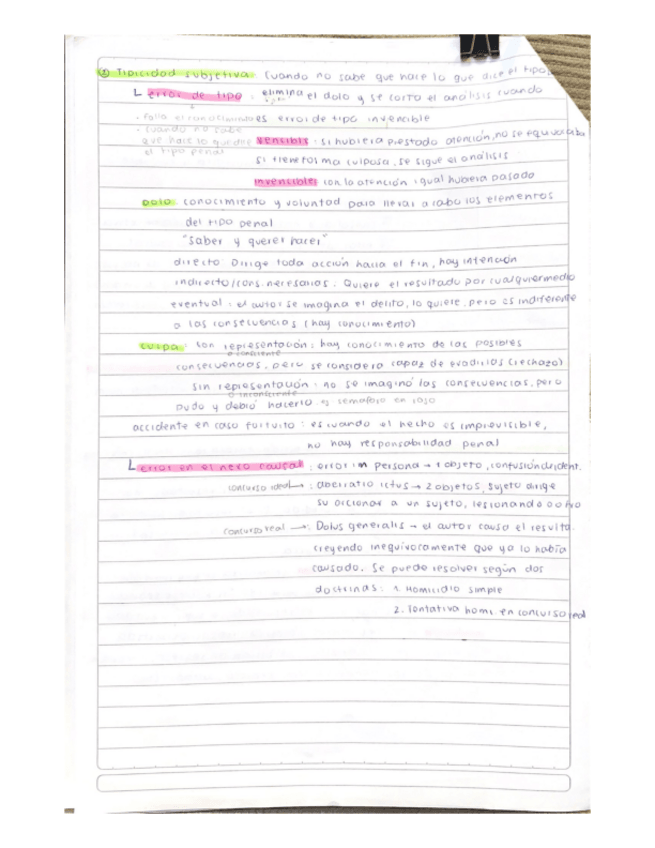 ② Tipicidad subjetiva: cuando no sabe que hace lo que dice el tipo
error de tipo: elimina el dolo y se corta el análisis cuando
es error de tipo invencible
· falla el conocimiento
· cuando no sabe
que hace lo que dice
el tipo penal
vencible: si hubiera prestado atención, no se equivocaba
si tiene forma culposa, se sigue el análisis
invencible: con la atención igual hubiera pasado
Dolo: conocimiento y voluntad para llevar a cabo los elementos
del tipo penal
"saber y querer hacer"
directo: Dirige toda acción hacia el fin, hay intención
indirecto/cons. necesarias: Quiere el resultado por cualquier medio
eventual: el autor se imagina el delito, lo quiere, pero es indiferente
a las consecuencias (hay conocimiento)
culpa: con representación: hay conocimiento de las posibles
o consciente
consecuencias, pero se considera capaz de evadirlas (rechazo)
sin representación: no se imaginó las consecuencias, pero
o inconsciente
pudo y debió hacerlo. ej semaforo en rojo
accidente en caso fortuito: es cuando el hecho es imprevisible,
no hay responsabilidad penal
error en el nexo causal: error in persona → 1 objeto, confusión d ident.
concurso ideal → : aberratio ictus → 2 objetos, sujeto dirige
su accionar a un sujeto, lesionando a otro
concurso real → : Dolus generalis → el autor causa el resulta.
creyendo inequivocamente que ya lo había
causado. Se puede resolver según dos
doctrinas: 1. Homicidio simple
2. Tentativa homi. en concurso real